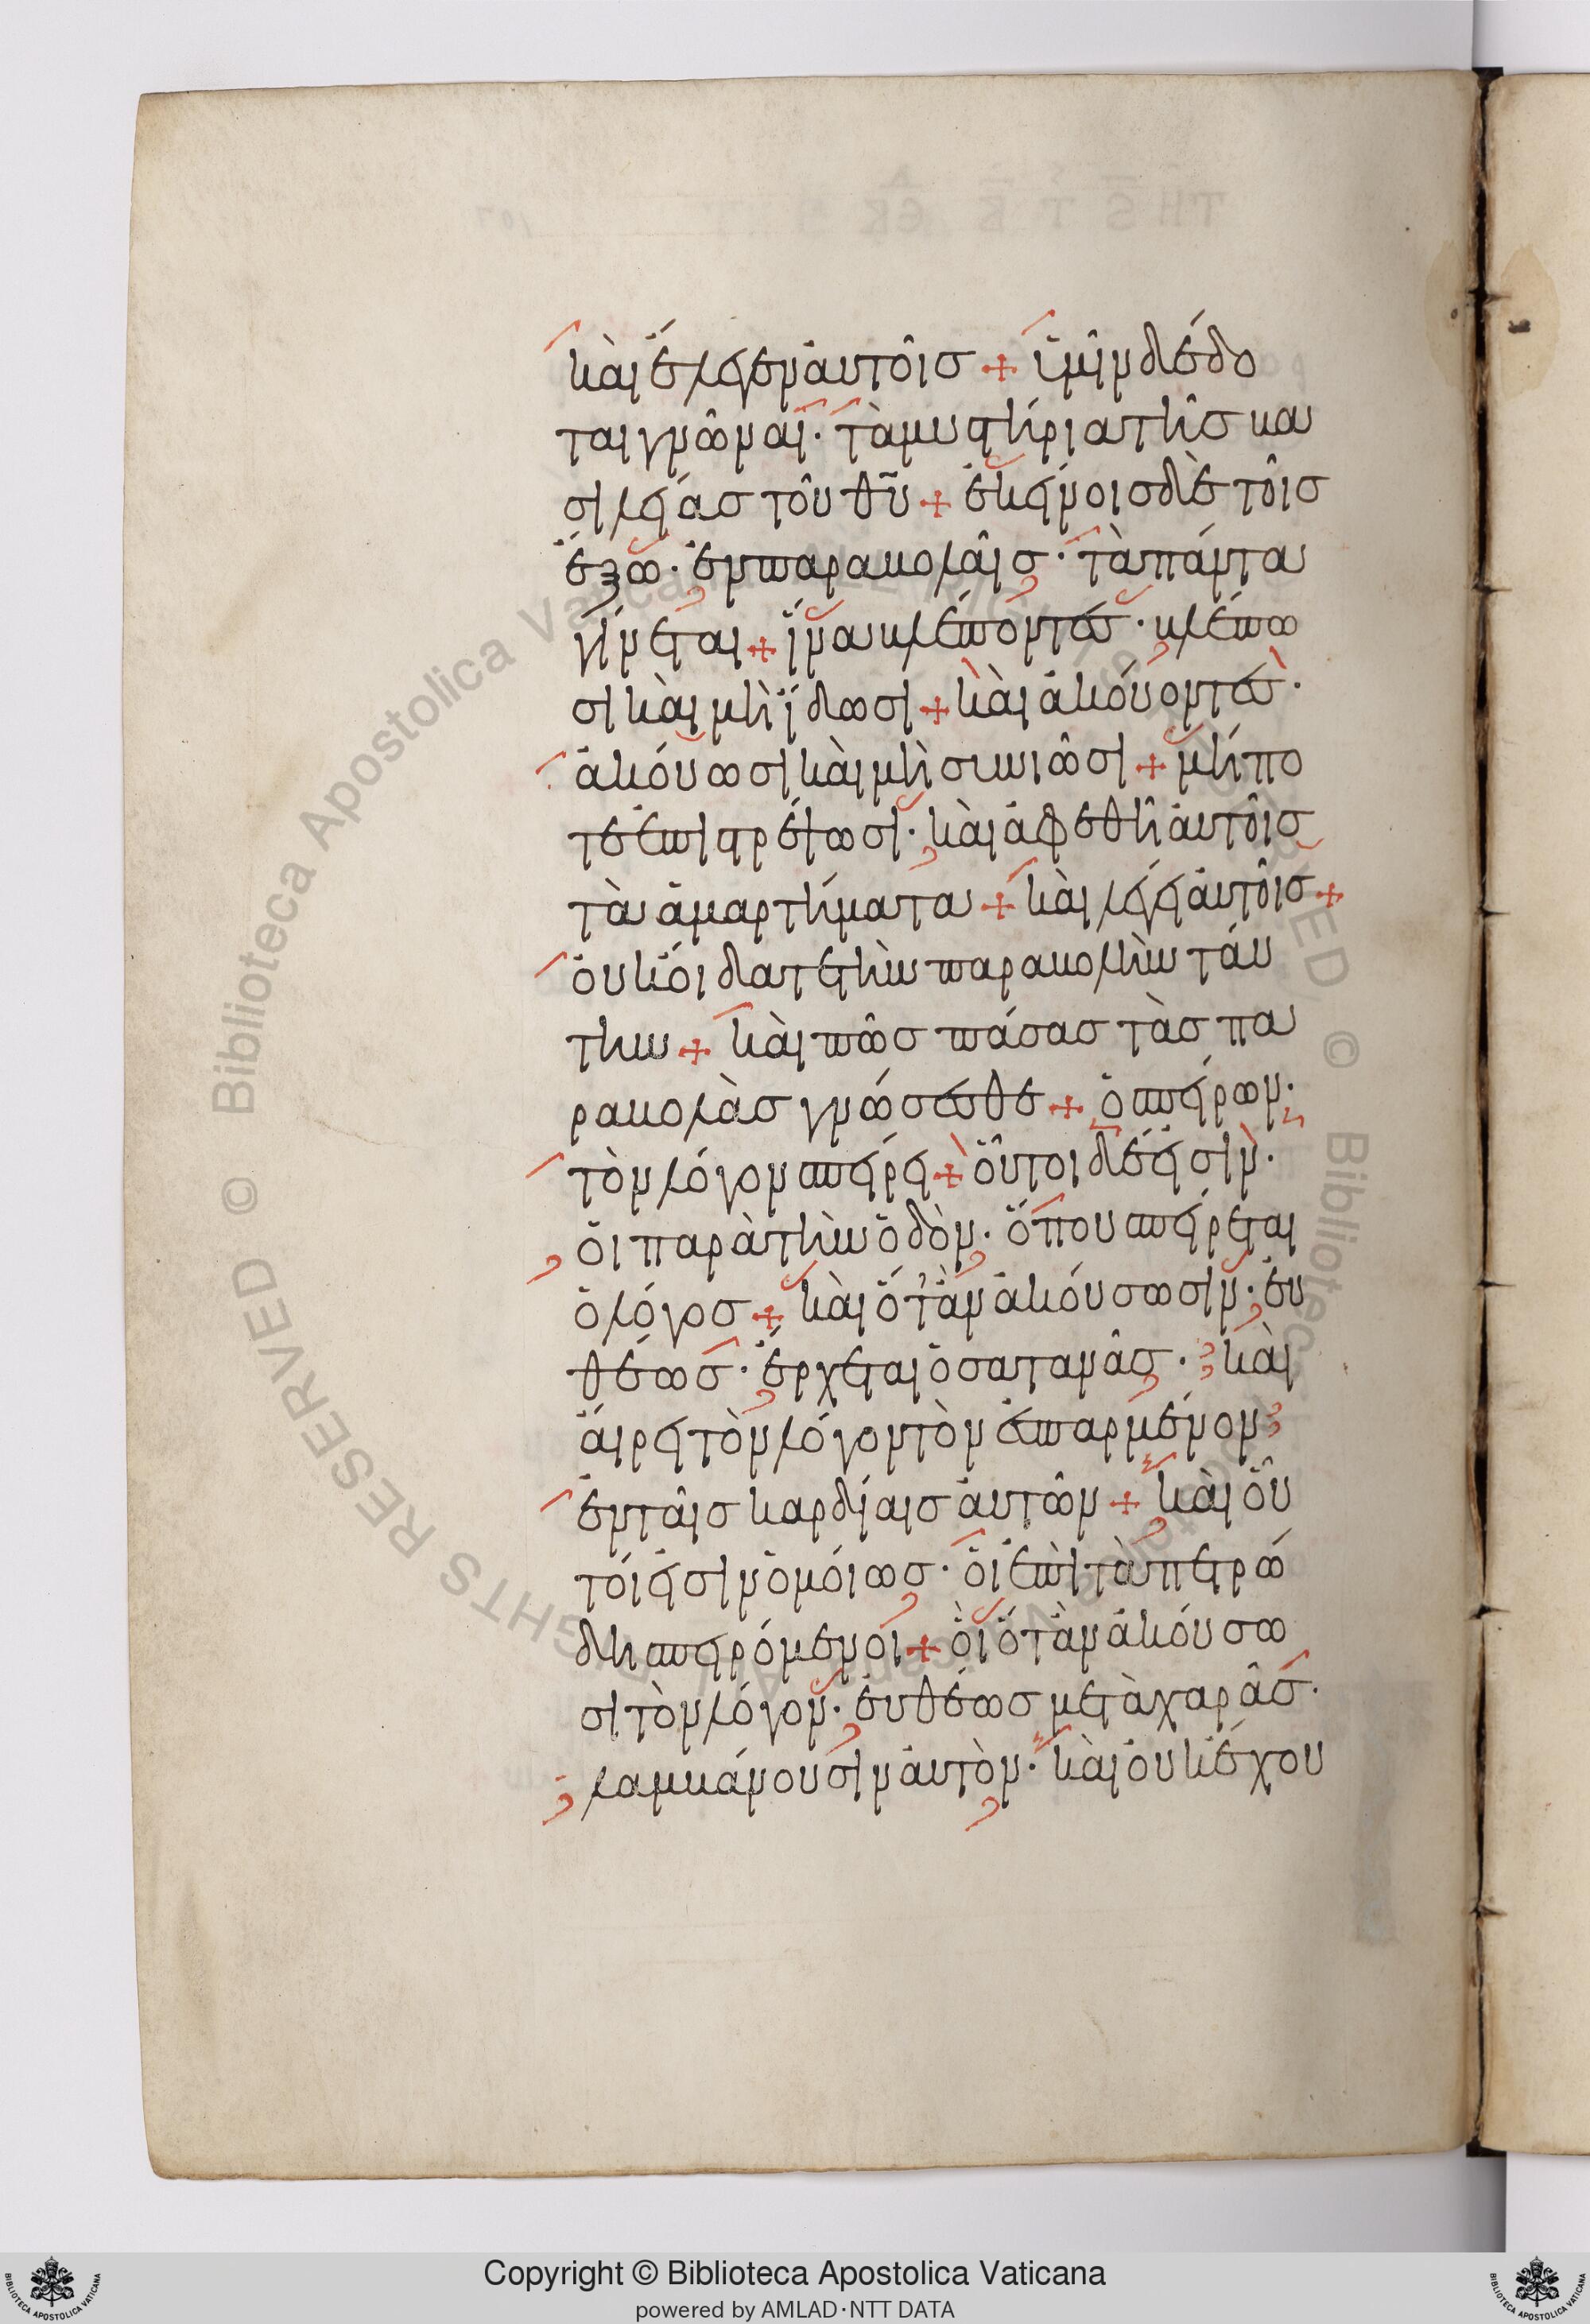 καὶ ἔλεγεν αὐτοῖσ + ὑμῖν δέδο
ται γνῶναι· τὰ μυστήρια τῆσ βα
σιλείασ τοῦ θυ + ἐκείνοισ δὲ τοῖσ
ἔξω· ἐν παραβολαῖσ· τὰ πάντα
γίνεται + ἵνα βλέποντεσ· βλέπω
σι καὶ μὴ ἴδωσι + καὶ ἀκούοντεσ·
ἀκούωσι καὶ μὴ συνιῶσι + μήπο
τε ἐπιστρέψωσι· καὶ ἀφεθῆ αὐτοῖσ
τὰ ἁμαρτήματα + καὶ λέγει αὐτοῖσ +
οὐκ οἴδατε τὴν παραβολὴν ταύ
την + καὶ πῶσ πάσασ τὰσ πα
ραβολὰσ γνώσεσθε + ὁ σπείρων·
τὸν λόγον σπείρει + οὗτοι δέ εἰσιν·
οἱ παρὰ τὴν ὁδὸν· ὅπου σπείρεται
ὁ λόγοσ + καὶ ὅταν ἀκούσωσιν· εὐ
θέωσ· ἔρχεται ὁ σατανᾶσ· καὶ
αἴρει τὸν λόγον τὸν ἐσπαρμένον
ἐν ταῖσ καρδίαισ αὐτῶν + καὶ οὗ
τοί εἰσιν ὁμοίωσ· οἱ ἐπὶ τὰ πετρώ
δη σπειρόμενοι + οἳ ὅταν ἀκούσω
σι τὸν λόγον· εὐθέωσ μετὰ χαρᾶσ·
λαμβάνουσιν αὐτὸν· καὶ οὐκ ἔχου
© Biblioteca Apostolica Vaticana
Copyright © Biblioteca Apostolica Vaticana
powered by AMLAD·NTT DATA